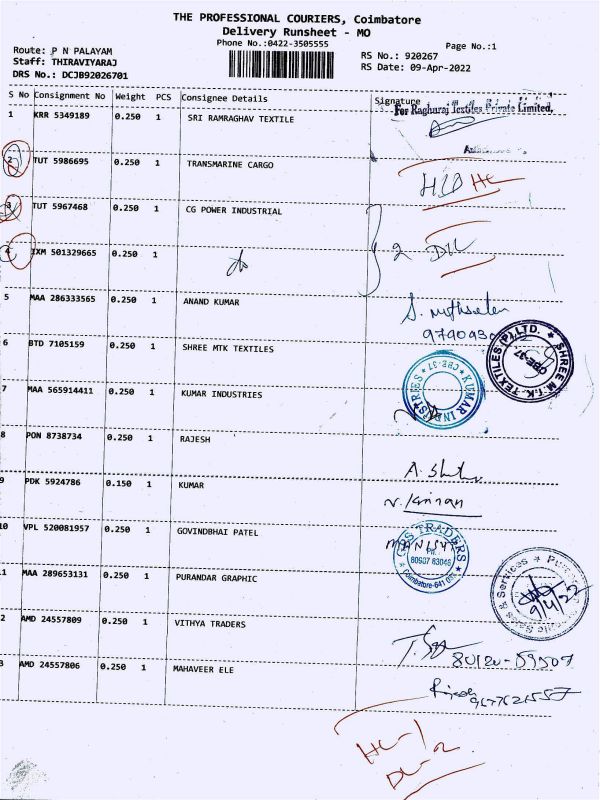 THE PROFESSIONAL COURIERS, Coimbatore
Delivery Runsheet - MO
Phone No.:0422-3505555
Page No.:1
Route: P N PALAYAM
Staff: THIRAVIYARAJ
DRS No.: DCJB92026701
RS No.: 920267
RS Date: 09-Apr-2022
S No Consignment No Weight PCS Consignee Details Signature
For Raghuraj Textiles Private Limited,
1 KRR 5349189 0.250 1 SRI RAMRAGHAV TEXTILE
2 TUT 5986695 0.250 1 TRANSMARINE CARGO
HC
3 TUT 5967468 0.250 1 CG POWER INDUSTRIAL
2
4 IXM 501329665 0.250 1 do
5 MAA 286333565 0.250 1 ANAND KUMAR
6 BTD 7105159 0.250 1 SHREE MTK TEXTILES
SHREE M.T.K. TEXTILES (P) LTD. CBE-37
7 MAA 565914411 0.250 1 KUMAR INDUSTRIES
KUMAR INDUSTRIES CBE-37
8 PON 8738734 0.250 1 RAJESH
9 PDK 5924786 0.150 1 KUMAR
10 VPL 520081957 0.250 1 GOVINDBHAI PATEL
TRADERS
Coimbatore-641
1 MAA 289653131 0.250 1 PURANDAR GRAPHIC
Sales & Services
9/4/22
2 AMD 24557809 0.250 1 VITHYA TRADERS
3 AMD 24557806 0.250 1 MAHAVEER ELE
HC-1
DL-2